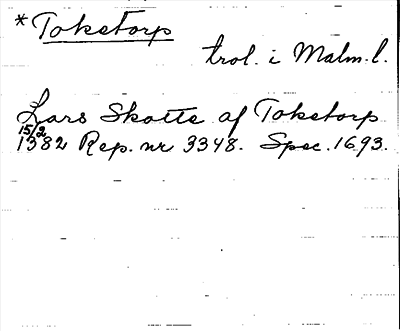 * Toketorp
trol. i Malm. l.
Lars Skotte af Toketorp
15/2
1382 Rep. nr 3348. Spec. 1693.